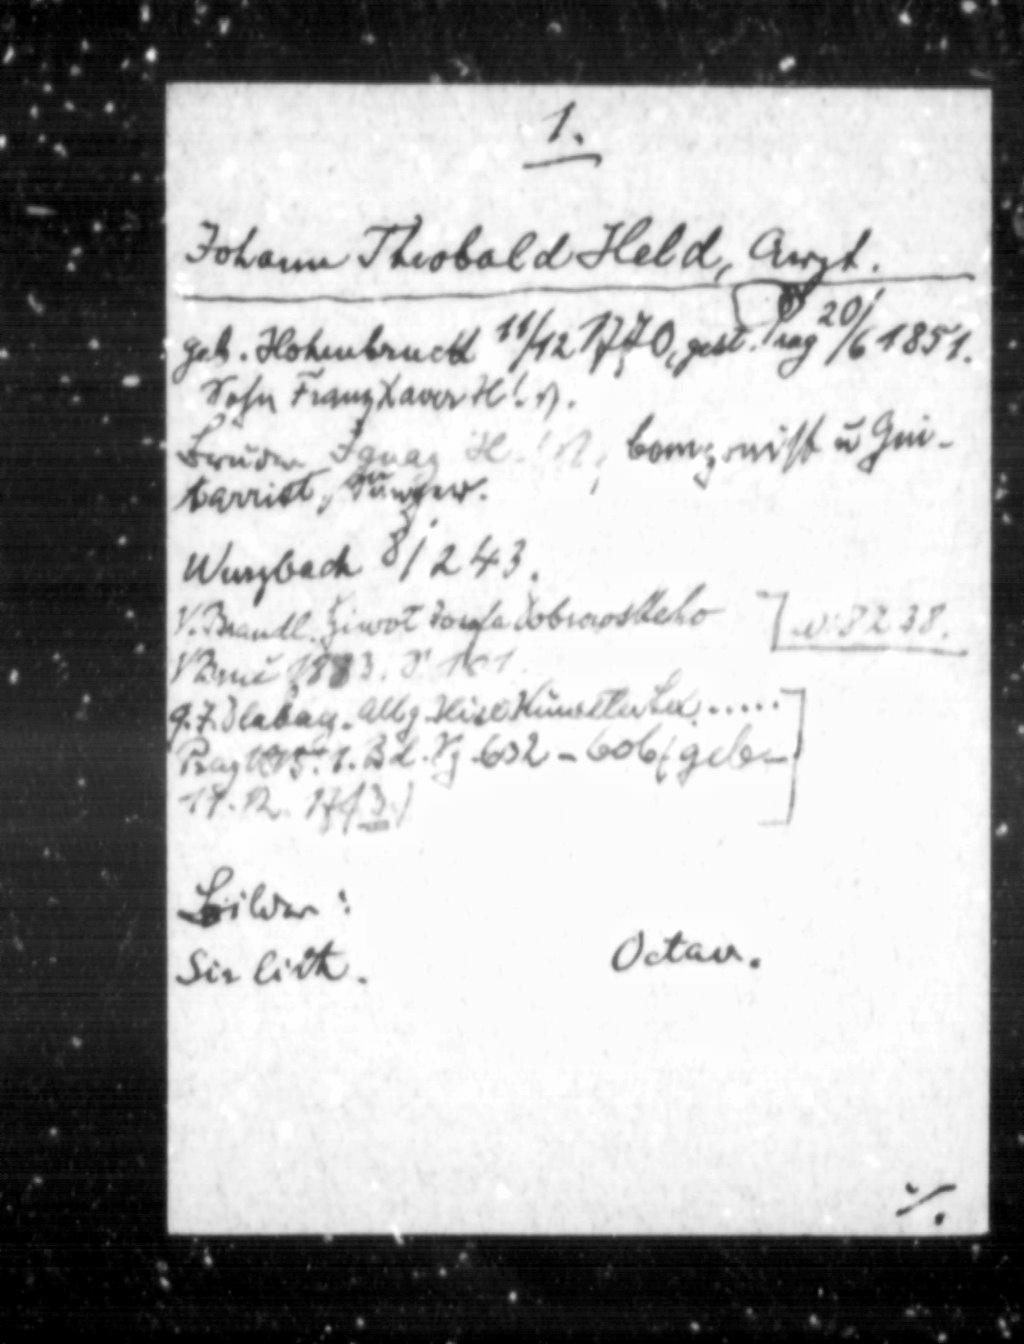 1.
Johann Theobald Held, Arzt.
geb. Hohenbruck 11/12 1770, gest. Prag 20/6 1851.
Sohn Franz Xaver H!s).
Bruder Ignaz H. componist u Gui-
tarrist, Sänger.
Wurzbach 8/243.
V. Brandl. Život Josefa Dobrovského ] 8238.
V Brně 1883. S 101.
G. J. Dlabacz. Allg. Hist Künstler Lex. .....
Prag 1815. 1. Bd. 602-606 (geb.
11.12.
Bilder:
Sie lith. Octav.
./.